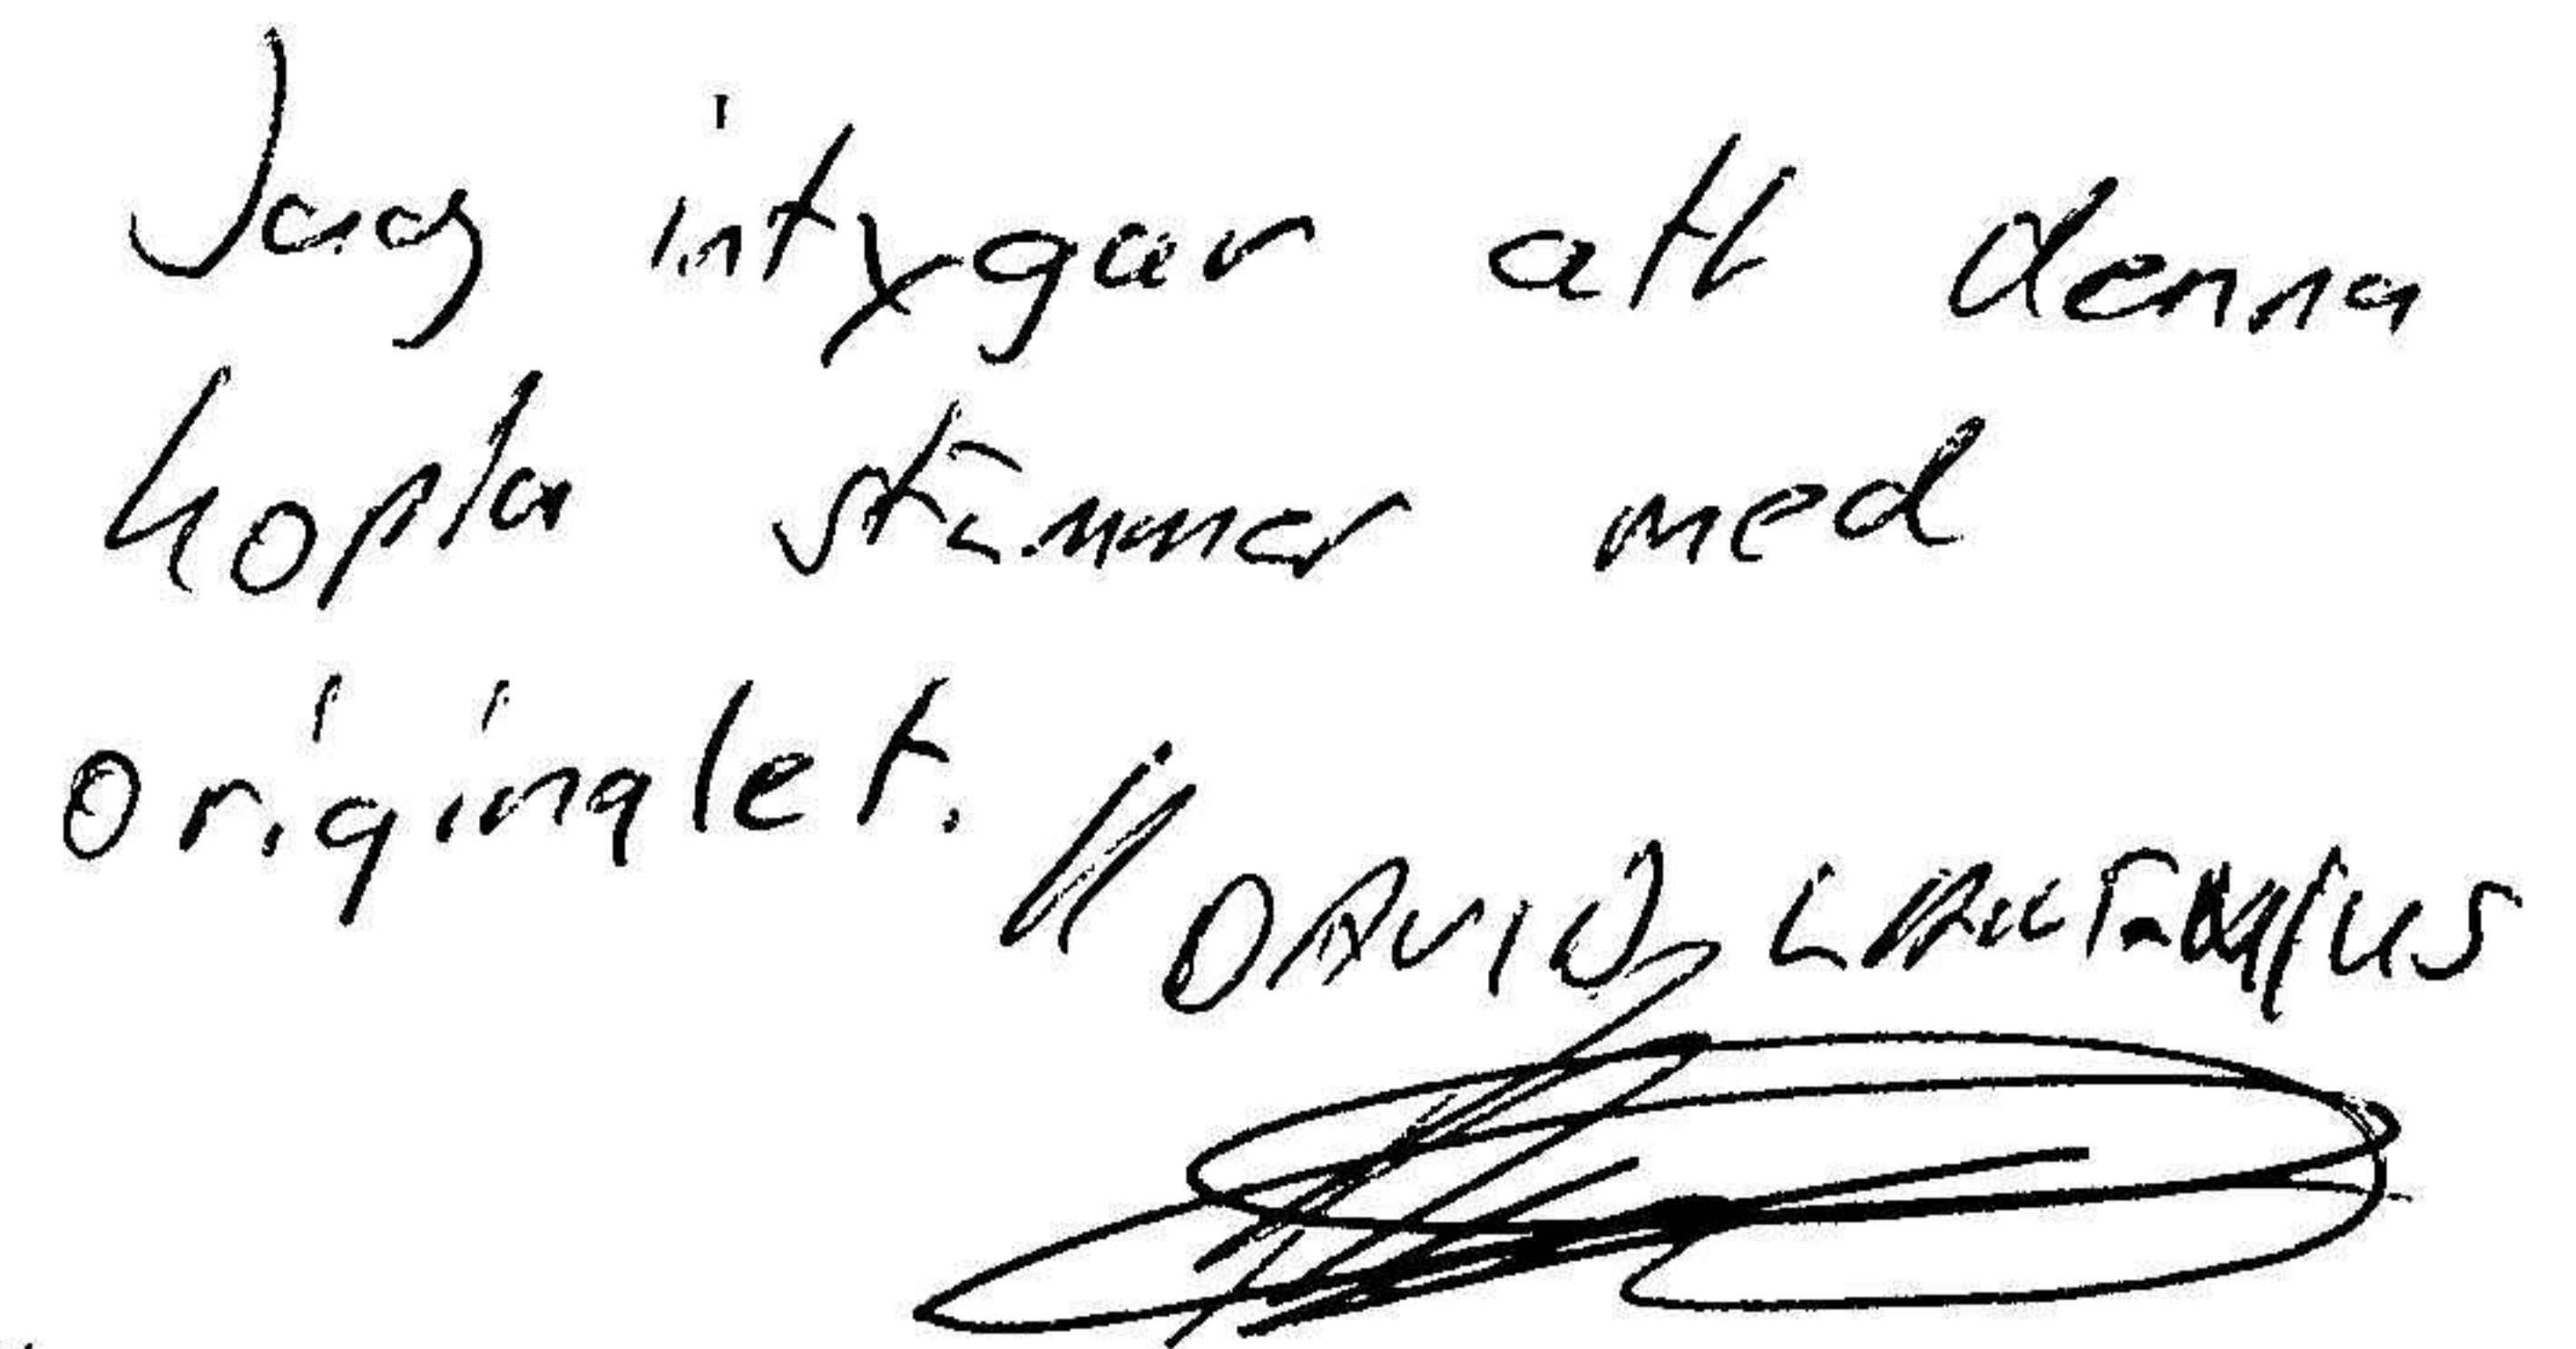 Jag intygar att denna
kopia stämmer med
originalet. // DAVID